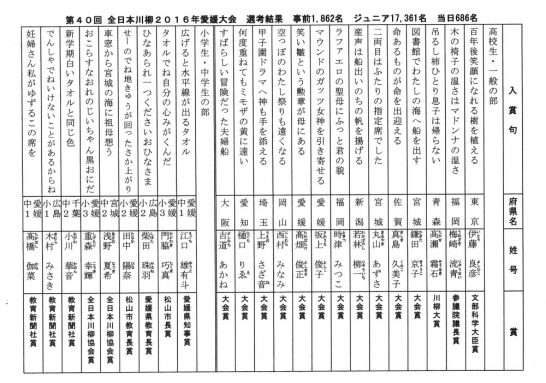 第40回 全日本川柳2016年愛媛大会 選考結果 事前1,862名 ジュニア17,361名 当日686名
入賞句 府県名 姓号 賞
高校生・一般の部
百年後笑顔になれる樹を植える 東京 伊藤 良彦 文部科学大臣賞
木の椅子の温さはマドンナの温さ 福岡 梅崎 流青 参議院議長賞
吊るし柿ひとり息子は帰らない 青森 高瀬 霜石 川柳大賞
図書館でわたしの海へ船を出す 宮城 鎌田 京子 大会賞
命あるものが命を出迎える 佐賀 真島 久美子 大会賞
二両目はふたりの指定席でした 宮城 丸山 あずさ 大会賞
産声は船出いのちの帆を揚げる 新潟 若林 大会賞
ラファエロの聖母にふっと君の貌 福岡 時津 みつこ 大会賞
マウンドのガッツ女神を引き寄せる 愛媛 坂上 大会賞
笑い皺という勲章が母にある 愛媛 高畑 俊正 大会賞
空っぽのわたし祭りも遠くなる 岡山 西村 みなみ 大会賞
甲子園ドラマへ神も手を添える 埼玉 上野 大会賞
何度重ねてもミモザの黄に遠い 愛知 樋口 りゑ 大会賞
すばらしい冒険だった夫婦船 大阪 吉道 あかね 大会賞
小学生・中学生の部
広げると水平線が出るタオル 愛媛 中1 江口 雄有斗 愛媛県知事賞
タオルでね自分の心みがくんだ 愛媛 小3 門脇 巧真 松山市長賞
ひなあられ一つくださいおひなさま 広島 小2 柴田 珠羽 愛媛県教育長賞
せーのでね地きゅうが回ったさか上がり 愛媛 小2 田中 陽奈 松山市教育長賞
車窓から宮城の海に祖母想う 宮城 中2 浅野 夏希 全日本川柳協会賞
おこらすなおれのじいちゃん黒おにだ 愛媛 小3 重森 幸輝 全日本川柳協会賞
新学期白いタオルと同じ色 千葉 中2 小川 華音 教育新聞社賞
でんしゃでねいけないことがあるからね 広島 小1 木村 みさき 教育新聞社賞
妊婦さん私がゆずるこの席を 愛媛 中1 高橋 伽菜 教育新聞社賞